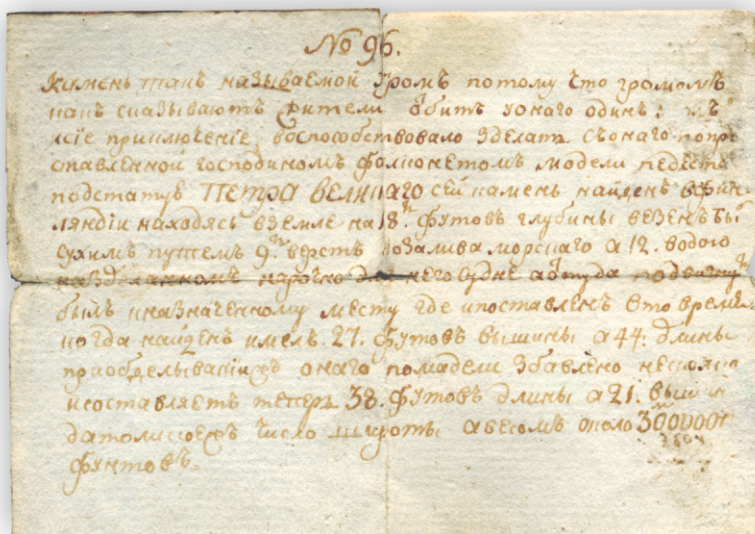 No 96.
Камень такъ называемой громъ потому что громомъ
какъ сказываютъ жители отбитъ уонаго одинъ:
ксіе приключеніе, воспособствовало зделать съонаго
ставленной господиномъ Фолконетомъ модели педеста
подстатуѣ Петра Великаго сей камень найденъ вфин
ляндіи находясь вземле на 18. футовъ глубины везенъ бы
сухимъ путемъ 9. верстъ дозалива морскаго а 12. водою
назделанномъ нарочно для него судне аоттуда подвинутъ
былъ кназначенному месту где ипоставленъ вто время
когда найденъ имелъ. 27. футовъ вышины а 44. длины
приобделываніи онаго помадели збавлено несколко
исоставляетъ теперь 38. футовъ длины а 21. выши
датоликоежъ число широты авесомъ около 3000000
фунтовъ.